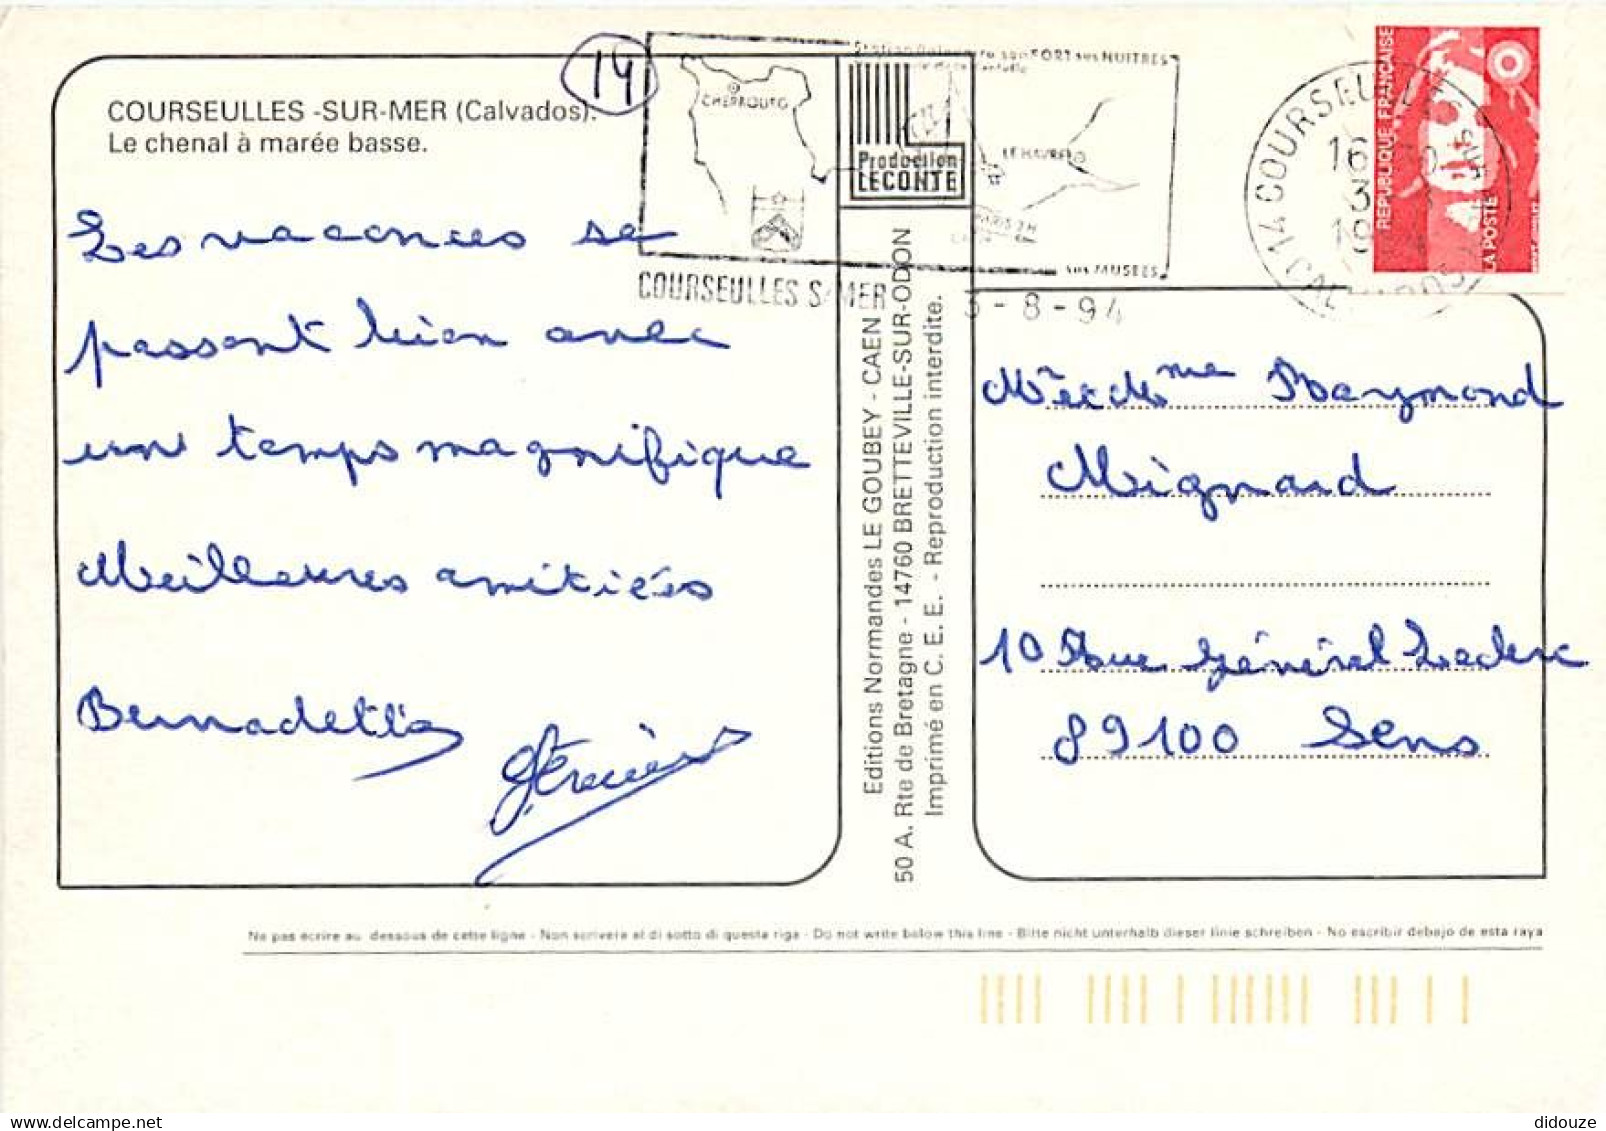 14
COURSEULLES -SUR-MER (Calvados).
Le chenal à marée basse.
Les vacances se
passent bien avec
un temps magnifique
Meilleures amitiés
Bernadette
CHERBOURG
LE HAVRE
PARIS 2H
SES MUSEES
COURSEULLES S/MER
3 - 8 - 94
Production
LECONTE
Editions Normandes LE GOUBEY - CAEN
50 A. Rte de Bretagne - 14760 BRETTEVILLE-SUR-ODON
Imprimé en C. E. E. - Reproduction interdite.
14 COURSEULLES
CALVADOS
REPUBLIQUE FRANÇAISE
LA POSTE
Mr et Mme Raymond
Mignard
10 Rue Général Leclerc
89100 Sens
Ne pas écrire au dessous de cette ligne - Non scrivere al di sotto di questa riga - Do not write below this line - Bitte nicht unterhalb dieser linie schreiben - No escribir debajo de esta raya
didouze